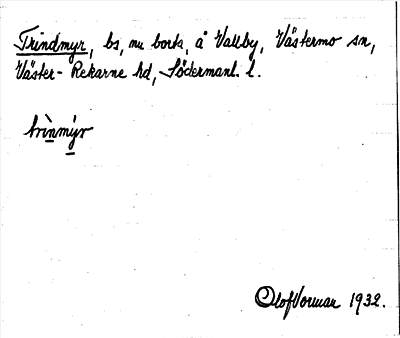 Trindmyr, bs, nu borta, å Vallby, Västermo sn,
Väster-Rekarne hd, Södermanl. l.
trìnmyr
Olof Vorman 1932.